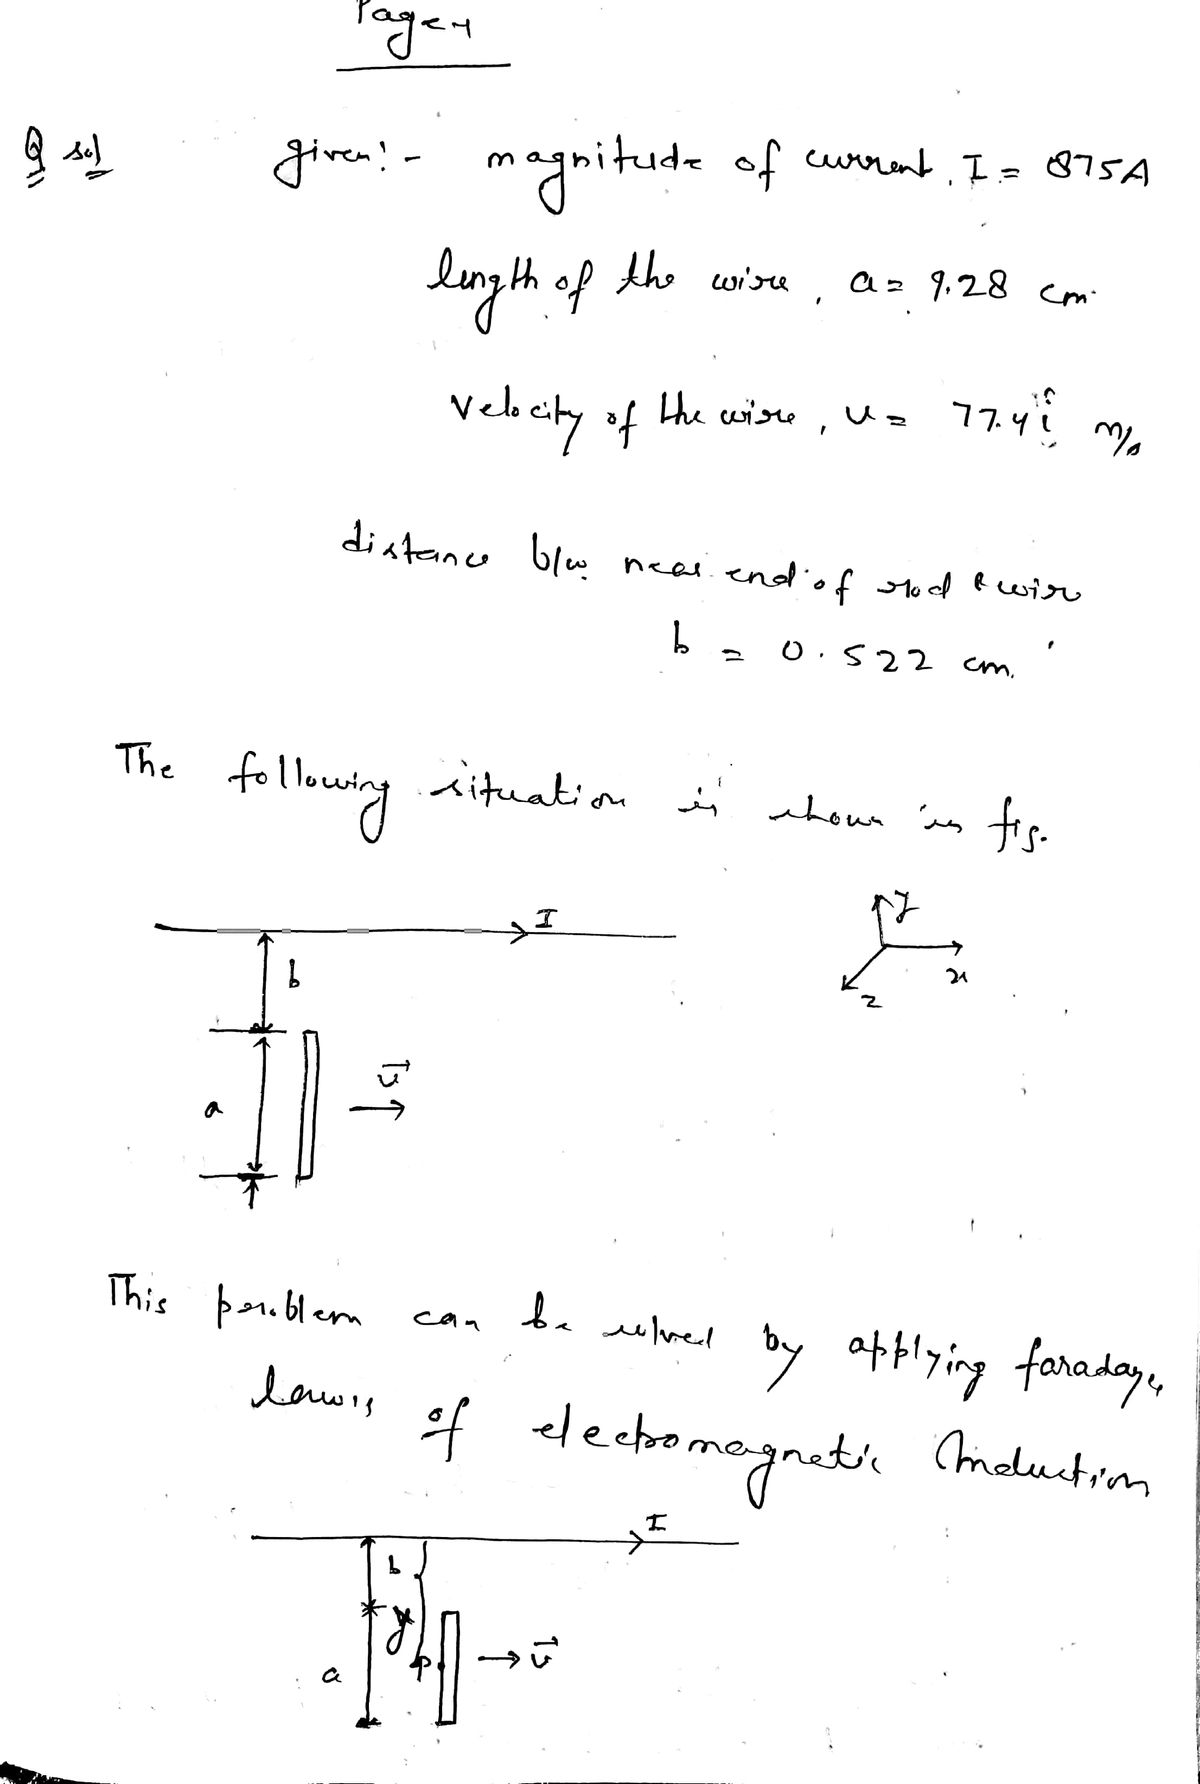 Page-1
Q sol
given:- magnitude of current, I = 875A
length of the wire, a = 9.28 cm
Velocity of the wire, v = 77.4 î m/s
distance b/w near end of rod & wire
b = 0.522 cm.
The following situation is shown in fig.
I
y
b
x
z
v⃗
a
This problem can be solved by applying faradays
laws of electromagnetic Induction
I
b
y
P
v⃗
a